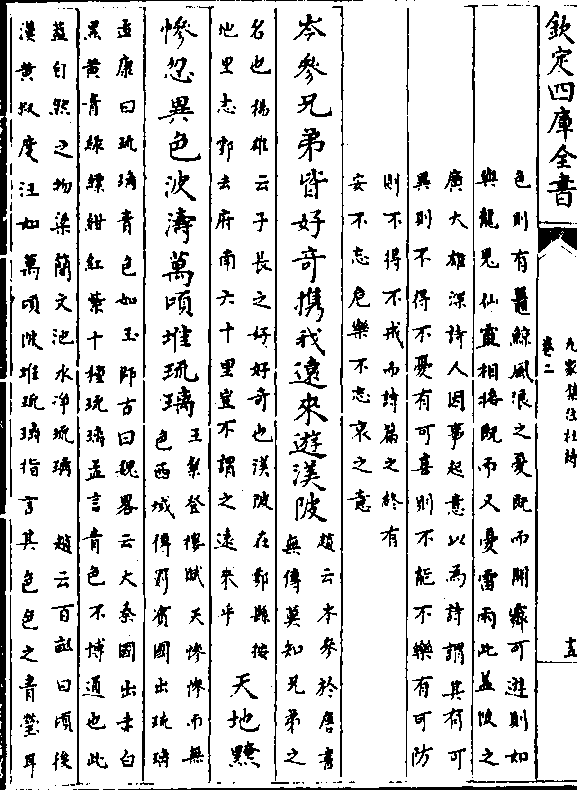 欽定四庫全書
九家集注杜詩
卷二
十五
色則有鼉鯨風浪之憂既而開霽可遊則如
與龍鬼仙靈相接既而又憂雷雨此蓋陂之
廣大雄深詩人因事起意以為詩謂其有可
異則不得不憂有可喜則不能不樂有可防
則不得不戒而詩篇之終有
安不忘危樂不忘哀之意
岑參兄弟皆好奇携我遠來遊渼陂
趙云岑參於唐書
無傳莫知兄弟之
名也揚雄云子長之好好奇也渼陂在鄠縣按
地里志鄠去府南六十里豈不謂之遠來乎
天地黤
慘忽異色波濤萬頃堆琉璃
王粲登樓賦天慘慘而無
色西域傳罽賓國出琉璃
孟康曰琉璃青色如玉師古曰魏畧云大秦國出赤白
黑黃青綠縹紺紅紫十種琉璃孟言青色不博通也此
蓋自然之物梁簡文池水淨琉璃
趙云百畝曰頃後
漢黃叔度汪如萬頃陂堆琉璃指言其色色之青瑩耳